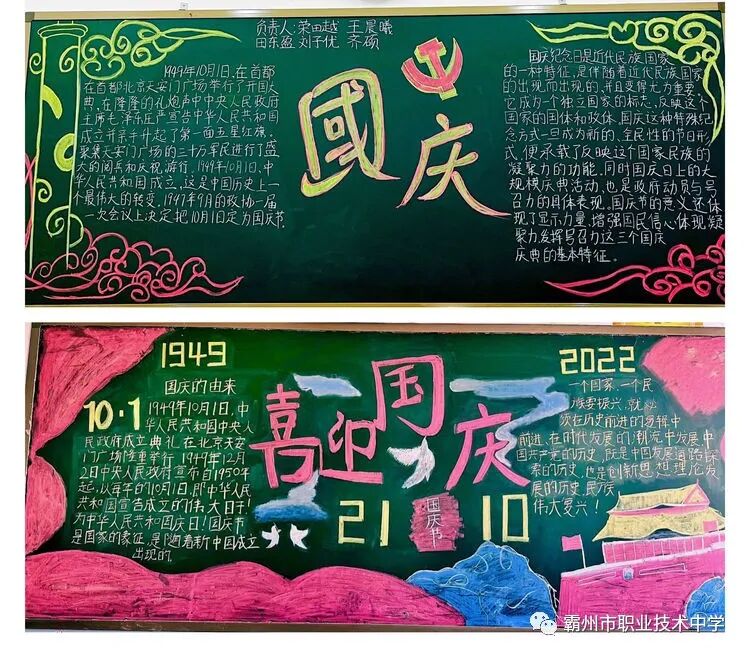 负责人:荣田越 王晨曦
田东盈 刘子优 齐硕
國庆
1949年10月1日,在首都
在首都北京天安门广场举行了开国大
典,在隆隆的礼炮声中中央人民政府
主席毛泽东庄严宣告中华人民共和国
成立并亲手升起了第一面五星红旗。
聚集天安门广场的三十万军民进行了盛
大的阅兵和庆祝游行。1949年10月1日,中
华人民共和国成立,这是中国历史上一
个最伟大的转变。1949年9月的政协一届
一次会议上决定把10月1日定为国庆节
国庆纪念日是近代民族国家
的一种特征,是伴随着近代民族国家
的出现而出现的,并且变得尤为重要。
它成为个独立国家的标志,反映这个
国家的国体和政体。国庆这种特殊纪
念方式一旦成为新的、全民性的节日形
式,便承载了反映这个国家民族的
凝聚力的功能。同时国庆日上的大
规模庆典活动,也是政府动员与号
召力的具体表现。国庆节的意义还体
现了显示力量、增强国民信心体现凝
聚力发挥号召力这三个国庆
庆典的基本特征。
1949
国庆的由来
10·1
1949年10月1日,中
华人民共和国中央人
民政府成立典礼在北京天安
门广场隆重举行1949年12月
2日中央人民政府宣布自1950年
起,以每年的10月1日,即中华人民
共和国宣告成立的伟大日子!
为中华人民共和国庆日!国庆节
是国家的象征,是随着新中国成立
出现的。
喜迎国庆
21
国庆节
10
2022
一个国家、一个民
族要振兴,就必
须在历史前进的逻辑中
前进、在时代发展的潮流中发展中
国共产党的历史,既是中国发展道路探
索的历史,也是创新思想理论发
展的历史,民族
伟大复兴!
霸州市职业技术中学